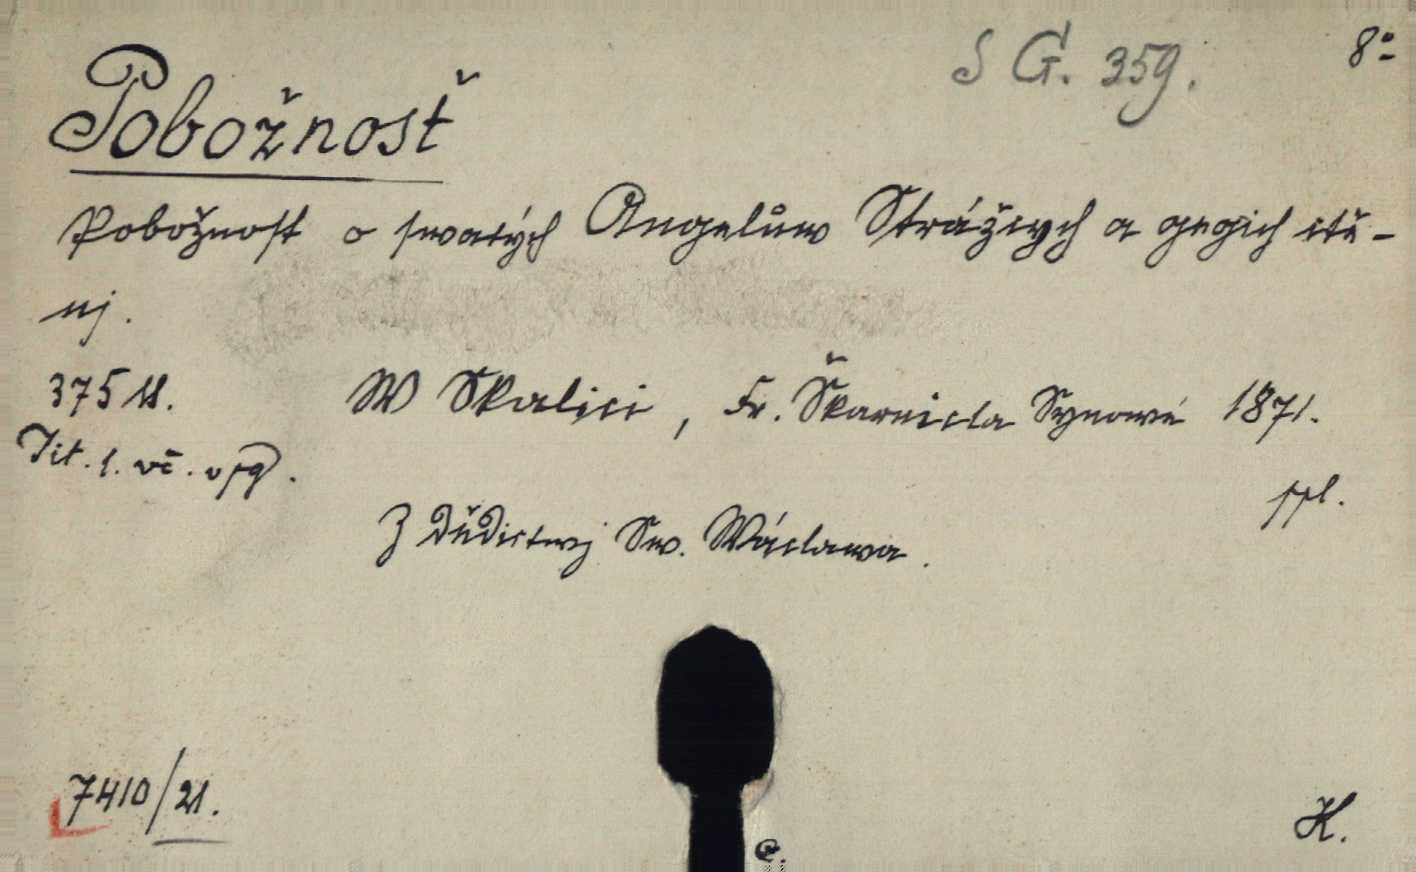 S G. 359. 8°
Pobožnosť
Pobožnost o swatých Angelůw Strážcych a gegich ctě-
nj.
375 S. W Skalici, Fr. Škarnicla Synowé 1871.
Tit. l. vč.
Z Dědictwj Sw. Wáclawa.
7410/21. H.